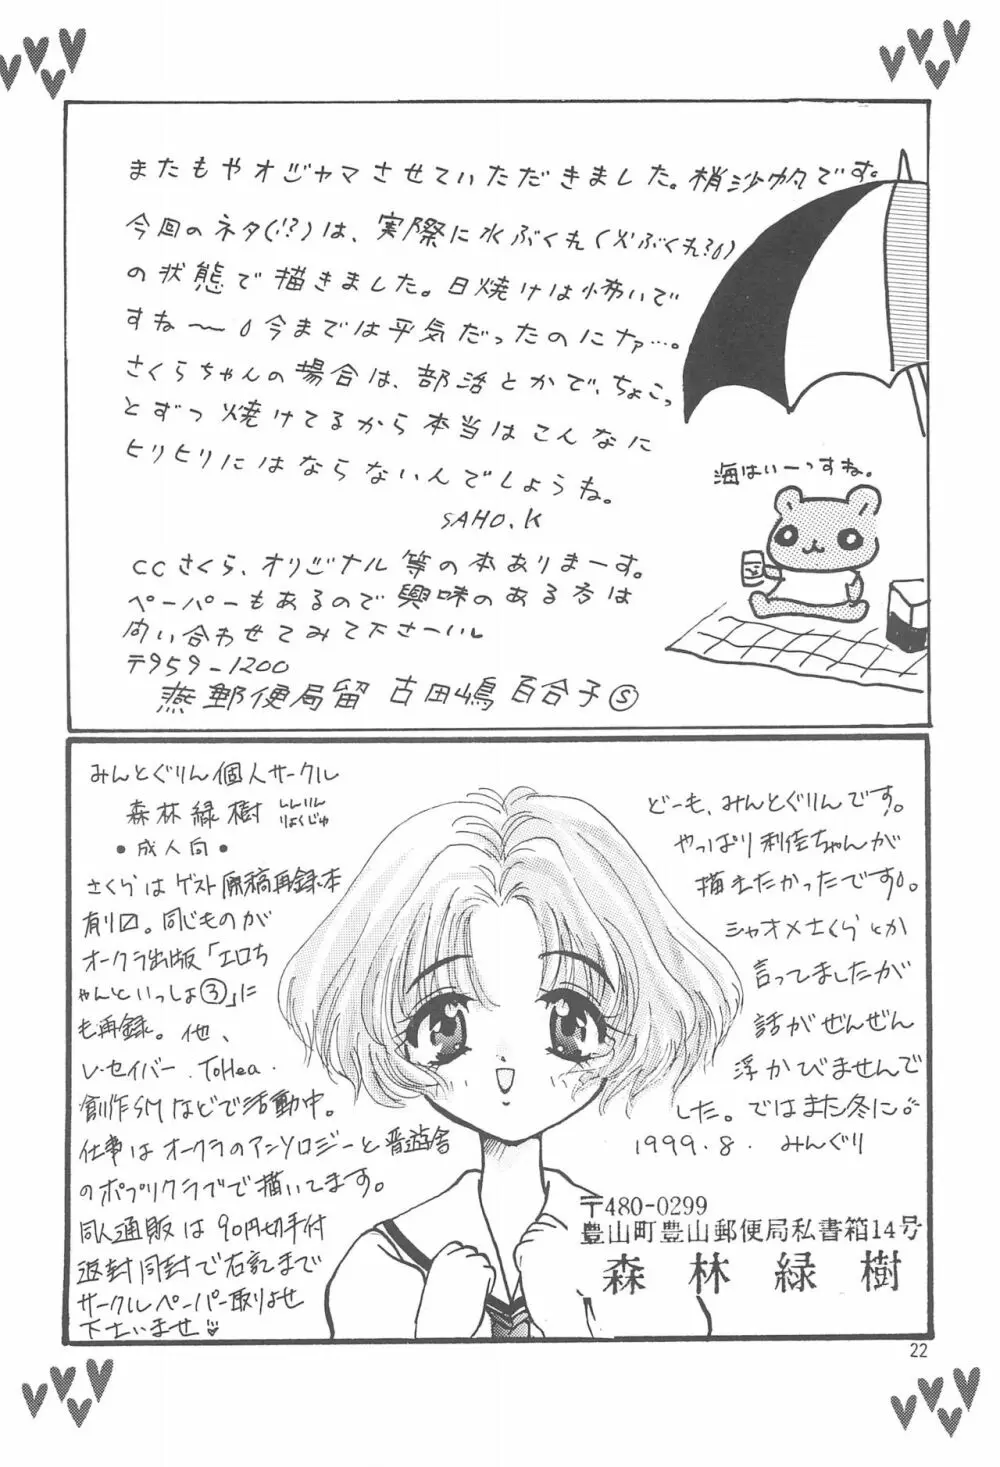 またもやオジャマさせていただきました。梢沙帆です。
今回のネタ(!?)は、実際に水ぶくれ(火ぶくれ?)
の状態で描きました。日焼けは怖いで
すね〜 今までは平気だったのにナァ…。
さくらちゃんの場合は、部活とかで、ちょこっ
とずつ焼けてるから本当はこんなに
ヒリヒリにはならないんでしょうね。
SAHO.K
海はいーっすね。
CCさくら、オリジナル等の本ありまーす。
ペーパーもあるので興味のある方は
問い合わせてみて下さーいし
〒959-1200
燕郵便局留 古田嶋百合子Ⓢ
みんとぐりん個人サークル
森林緑樹 しんりん
りょくじゅ
•成人向•
さくらはゲスト原稿再録本
有り〼。同じものが
オークラ出版「エロち
ゃんといっしょ③」に
も再録。他、
レ・セイバー. ToHea.
創作SMなどで活動中。
仕事はオークラのアンソロジーと晋遊舎
のポプリクラブで描いてます。
同人通販は90円切手付
返封同封で右記まで
サークルペーパー取りよせ
下さいませ♡
どーも、みんとぐりんです。
やっぱり利佳ちゃんが
描きたかったです。
シャオメさくらとか
言ってましたが
話がぜんぜん
浮かびませんで
した。ではまた冬に
1999.8. みんぐり
〒480-0299
豊山町豊山郵便局私書箱14号
森林緑樹
22